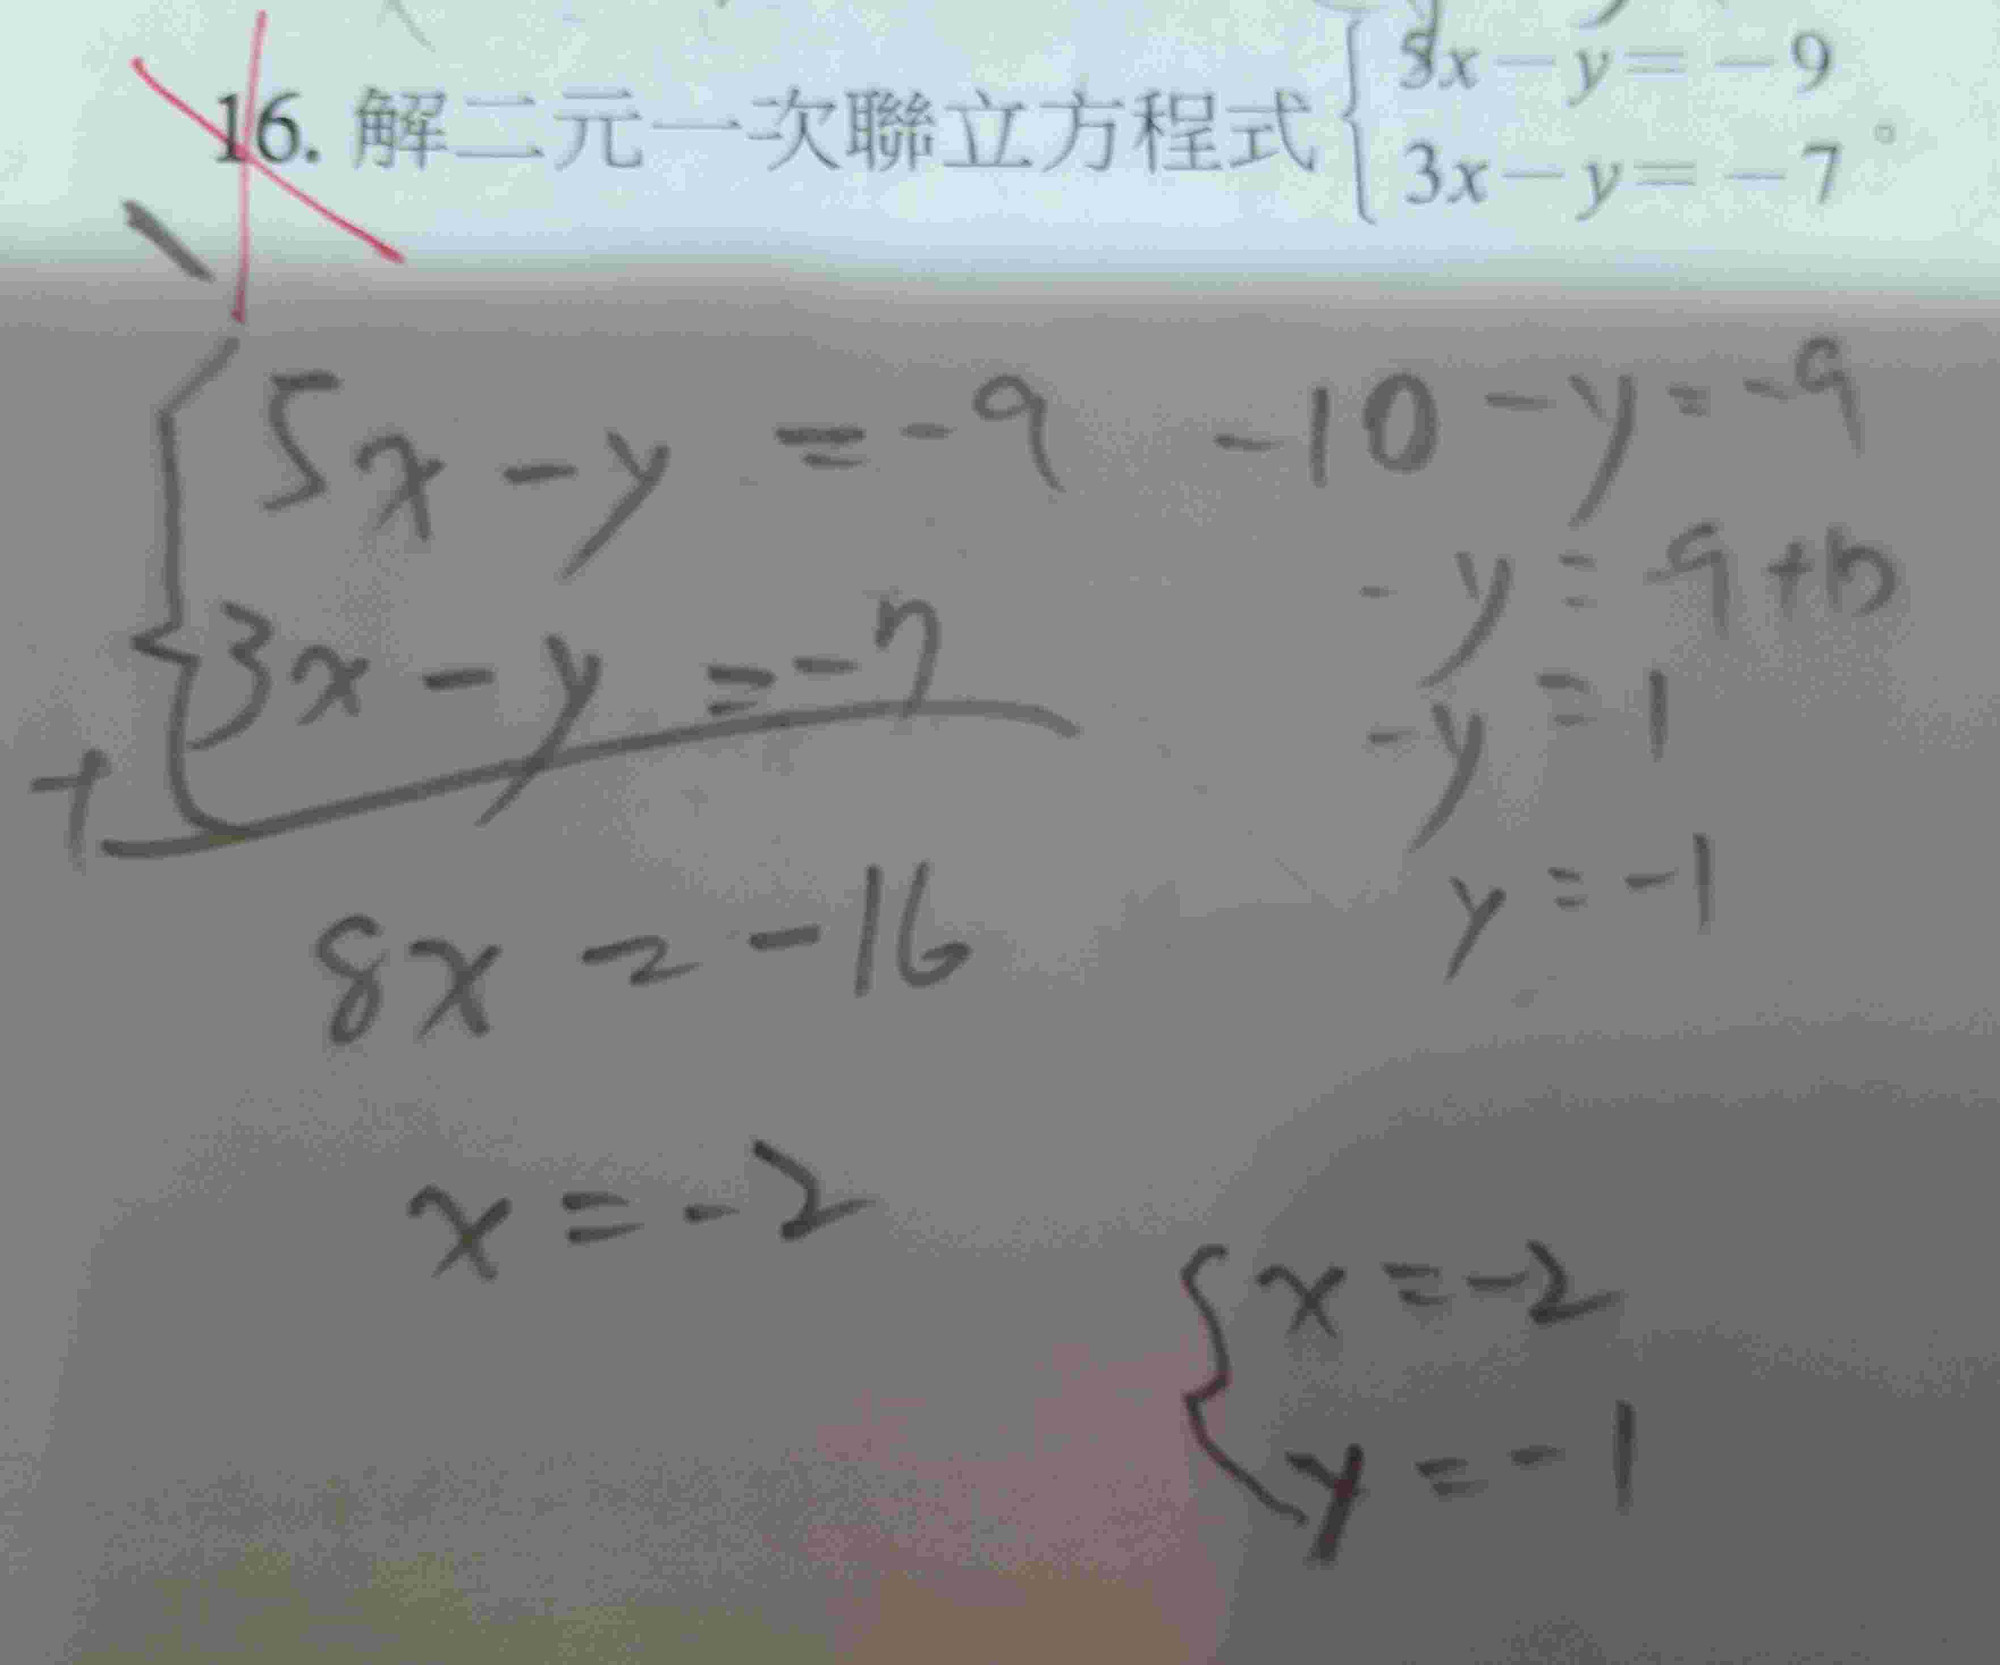 16. 解二元一次聯立方程式 { 5x－y＝－9
3x－y＝－7 。
5x - y = -9
3x - y = -7
+
8x = -16
x = -2
-10 - y = -9
-y = -9+10
-y = 1
y = -1
x = -2
y = -1